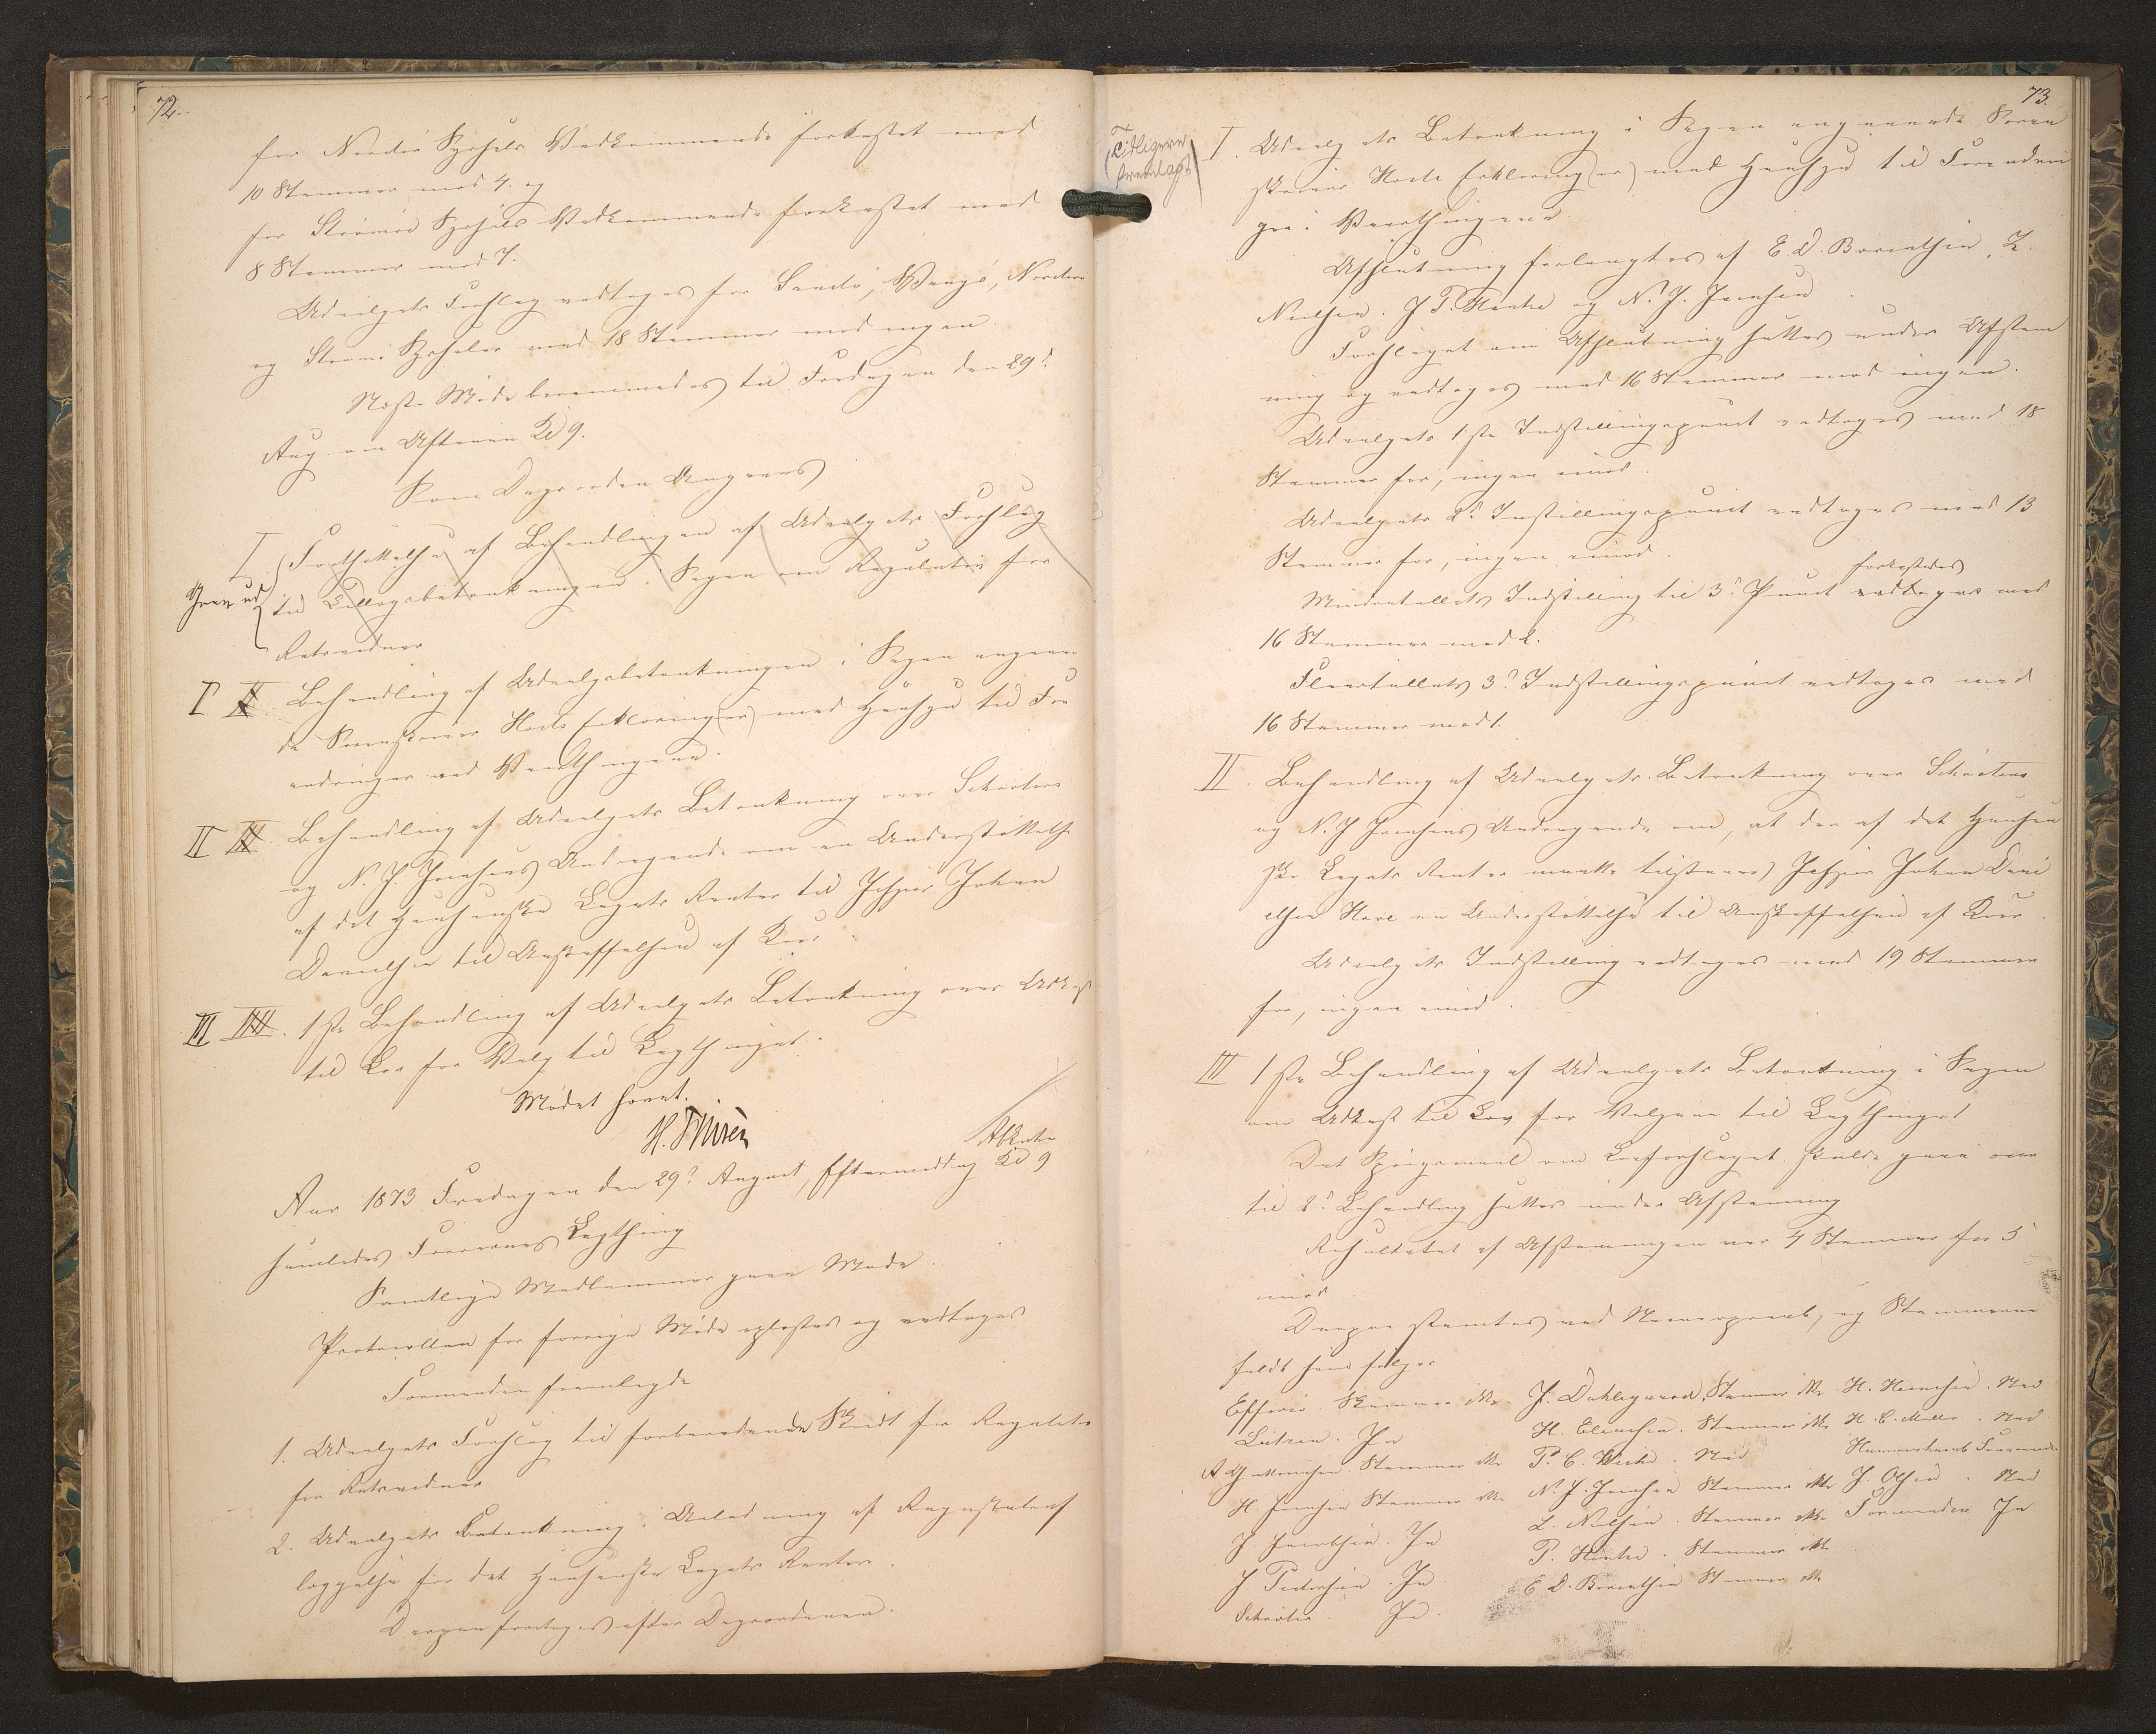 72.
for Norderø Sysels Vedkommende forkastet med
10 Stemmer mod 4. og
for Strømø Sysels Vedkommende forkastet med
8 Stemmer mod 7.
Udvalgets Forslag vedtoges for Sandø, Vaagø, Norderø
og Strømø Sysseler med 18 Stemmer mod ingen.
Næste Møde berammedes til Fredagen den 29d
Aug. om Aftenen Kl 9.
Som Dagsorden Angaves
I. Fortsættelse af Behandlingen af Udvalgets Forslag
Gaar ud
til Tillægsbetænkningen i Sagen om Regulativ for
Retsvidner
I II. Behandling af Udvalgsbetænkningen i Sagen angaaen-
de Sorenskriver Horte Erklæring(er) med Hensyn til For
andringer ved Varthingene.
II III. Behandling af Udvalgets Betænkning over Schrøters
og N. J. Joensens Andragende om en Understøttelse
af det Hansenske Legats Renter til Jesper Johan
Danielsen til Anskaffelsen af Køer
III IIII. 1ste Behandling af Udvalgets Betænkning over Udkast
til Lov for Valg til Lagthinget.
Mødet hævet.
H. Finsen
Aar 1873 Fredagen den 29d August, Eftermiddag Kl 9
samledes Færøernes Lagthing
Samtlige Medlemmer gave Møde.
Protocollen for forrige Møde oplæstes og vedtoges
Formanden fremlagde
1. Udvalgets Forslag til forberedende Skridt for Regulativ
for Retsvidner
2. Udvalgets Betænkning i Anledning af Regnskabsaf
læggelse for det Hansenske Legats Renter.
Derpaa foretoges efter Dagsordenen.
73.
(Tidligere
fremlagt)
I. Udvalgets Betænkning i Sagen angaaende Soren
skriver Horte Erklæring(er) med Hensyn til Forandrin
ger i Varthingene
Afslutning forlangtes af E. D. Bærentsen, L.
Nielsen. J. P. Hentze og N. J. Joensen
Forslaget om Afslutning sattes under Afstem
ning og vedtoges med 16 Stemmer mod ingen.
Udvalgets 1ste Indstillingspunct vedtoges med 18
Stemmer for, ingen imod.
Udvalgets 2d Indstillingspunct vedtoges med 13
Stemmer for, ingen imod.
Mindretallets Indstilling til 3d Punct vedtoges forkastedes med
16 Stemmer mod 2.
Fleertallets 3d Indstillingspunct vedtoges med
16 Stemmer mod 1.
II. Behandling af Udvalgets Betænkning over Schrøters
og N. J Joensens Andragende om, at der af det Hansen
ske Legats Renter maatte tilstaaes Jesper Johan Dani
elsen en Understøttelse til Anskaffelsen af Køer.
Udvalgets Indstilling vedtoges med 19 Stemmer
for, ingen imod.
III 1ste Behandling af Udvalgets Betænkning i Sagen
om Udkast til Lov for Valgene til Lagthinget
Det Spørgsmaal om Lovforslaget skulde gaae over
til 2d Behandling sattes under Afstemning
Resultatet af Afstemningen var 4 Stemmer for 5
imod
Derpaa stemtes ved Navneopraab, og Stemmerne
faldt som følger
Effersø. Stemmer ikke J. Dahlsgaard. Stemmer ikke H. Heinesen. Nei
Lützen. Ja H. Eliasen. Stemmer ikke H. C. Müller. Nei
Stemmer ikke P. C. Weihe. Nei Hammershaimb Fraværende
H. Joensen Stemmer ikke N. J. Joensen Stemmer ikke J. Olsen. Nei
J. Jacobsen. Ja L. Nielsen. Stemmer ikke Formanden Ja
J Pedersen. Ja P. Hentze. Stemmer ikke
Schrøter. Ja. E. D. Bærentsen Stemmer ikke